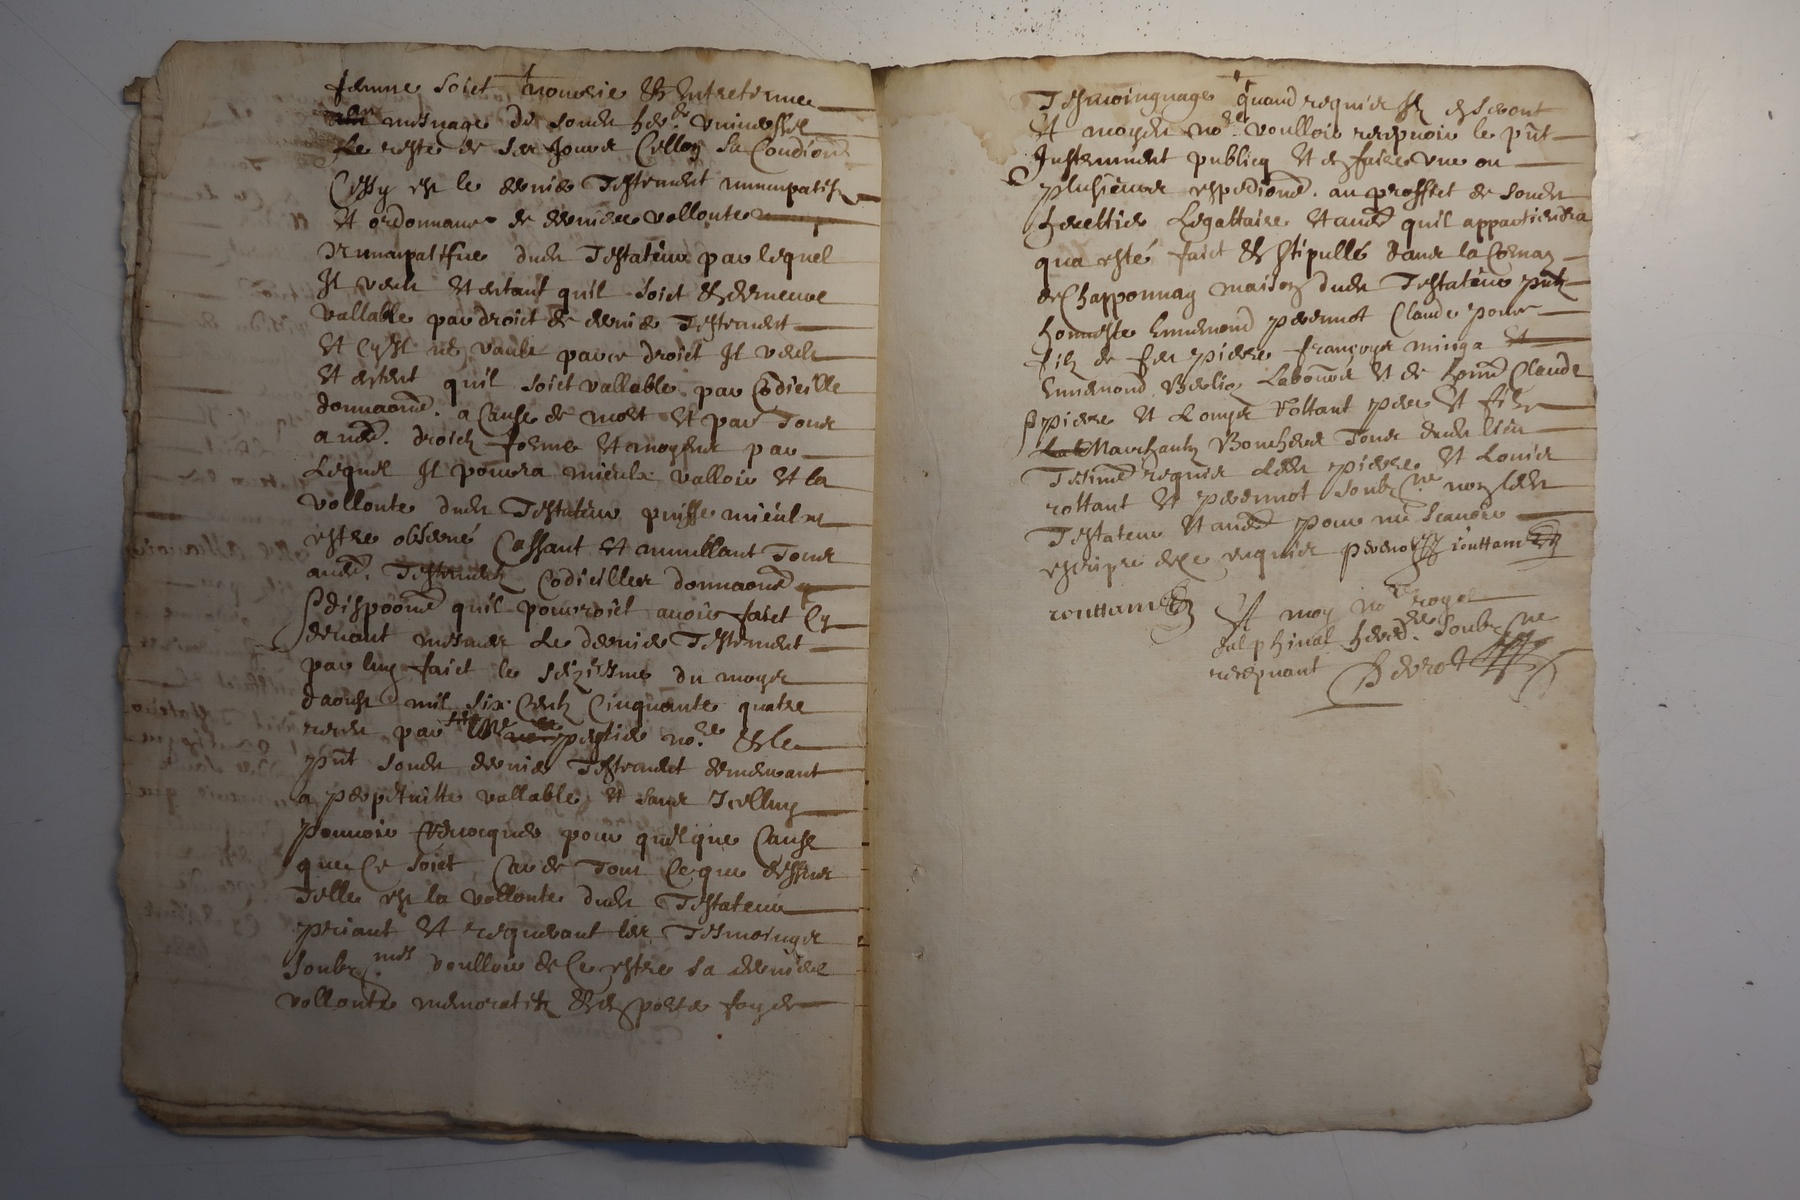 femme soict nourrie & entretenue
mesnage de sondit her. universel
le reste de ses jours selon sa condition
Cessy est le dernier Testement nuncupatif
et ordonnance de derniere vollonte
nuncupatifve dudit Testateur par lequel
Il veult et entant quil soict & demeure
vallable par droict de dernier Testement
Et cy Il ne vault par ce droict Il veult
et entent quil soict vallable par Codicille
donnaōns a cause de mort et par tous
aultres droictz forme et moyens par
lequel Il pourra mieulx valloir et la
vollonte dudit Testateur puisse mieulx
estre observé Cassant et annullant tous
aultres Testementz Codicilles donnaōns
dispōōns quil pourroict avoir faict cy
devant mesmes le dernier Testement
par luy faict le seiziesme du moys
daoust mil six centz cinquante quatre
receu par no.re & le
pn̄t sondit dernier Testement demeurant
a perpetuitte vallable et sans Icelluy
pouvoir revocquer pour quelque cause
que ce soict Car de tout ce que dessus
Telle est la vollonte dudit Testateur
priant et requerant les Tesmoings
soubznes voulloir de ce estre sa derniere
vollonte memoratifz & en porter foy de
Tesmoingnage quand requis Ilz en seront
Et moyd. no.re voulloir recepvoir le pn̄t
Instrument publicq et en faire une ou
plusieurs expediōns au proffict de sondit
herettier Legattaire et aultres quil appartiendra
qua esté faict & stipullé dans la
de Chapponnay maison dudit Testateur pn̄tz
honneste Ennemond pevernot Claude
filz de feu pierre françoys minga et
Ennemond Labour et de honn. Claude
pierre et Louys Rottant pere et filz
Marchantz Bouchers Tous dudit lieu
Tesmoings requis Lesdits pierre et Louis
rottant et pevernot soubzne non ledit
Testateur et aultres pour ne scavoir
escripre de ce requis
Et moy no.re royal
dalphinal hered.re soubzne
recepvant